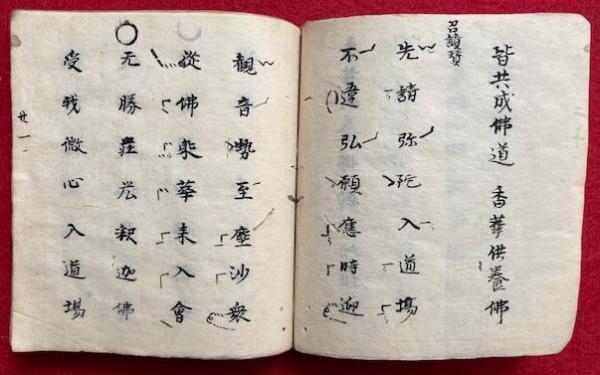 皆共成佛道 香華供養佛
召請讃
先請弥陀入道場
不違弘願應時迎
觀音勢至塵沙衆
從佛乘華来入會
〇
无勝荘厳釈迦佛
受我微心入道場
廿一